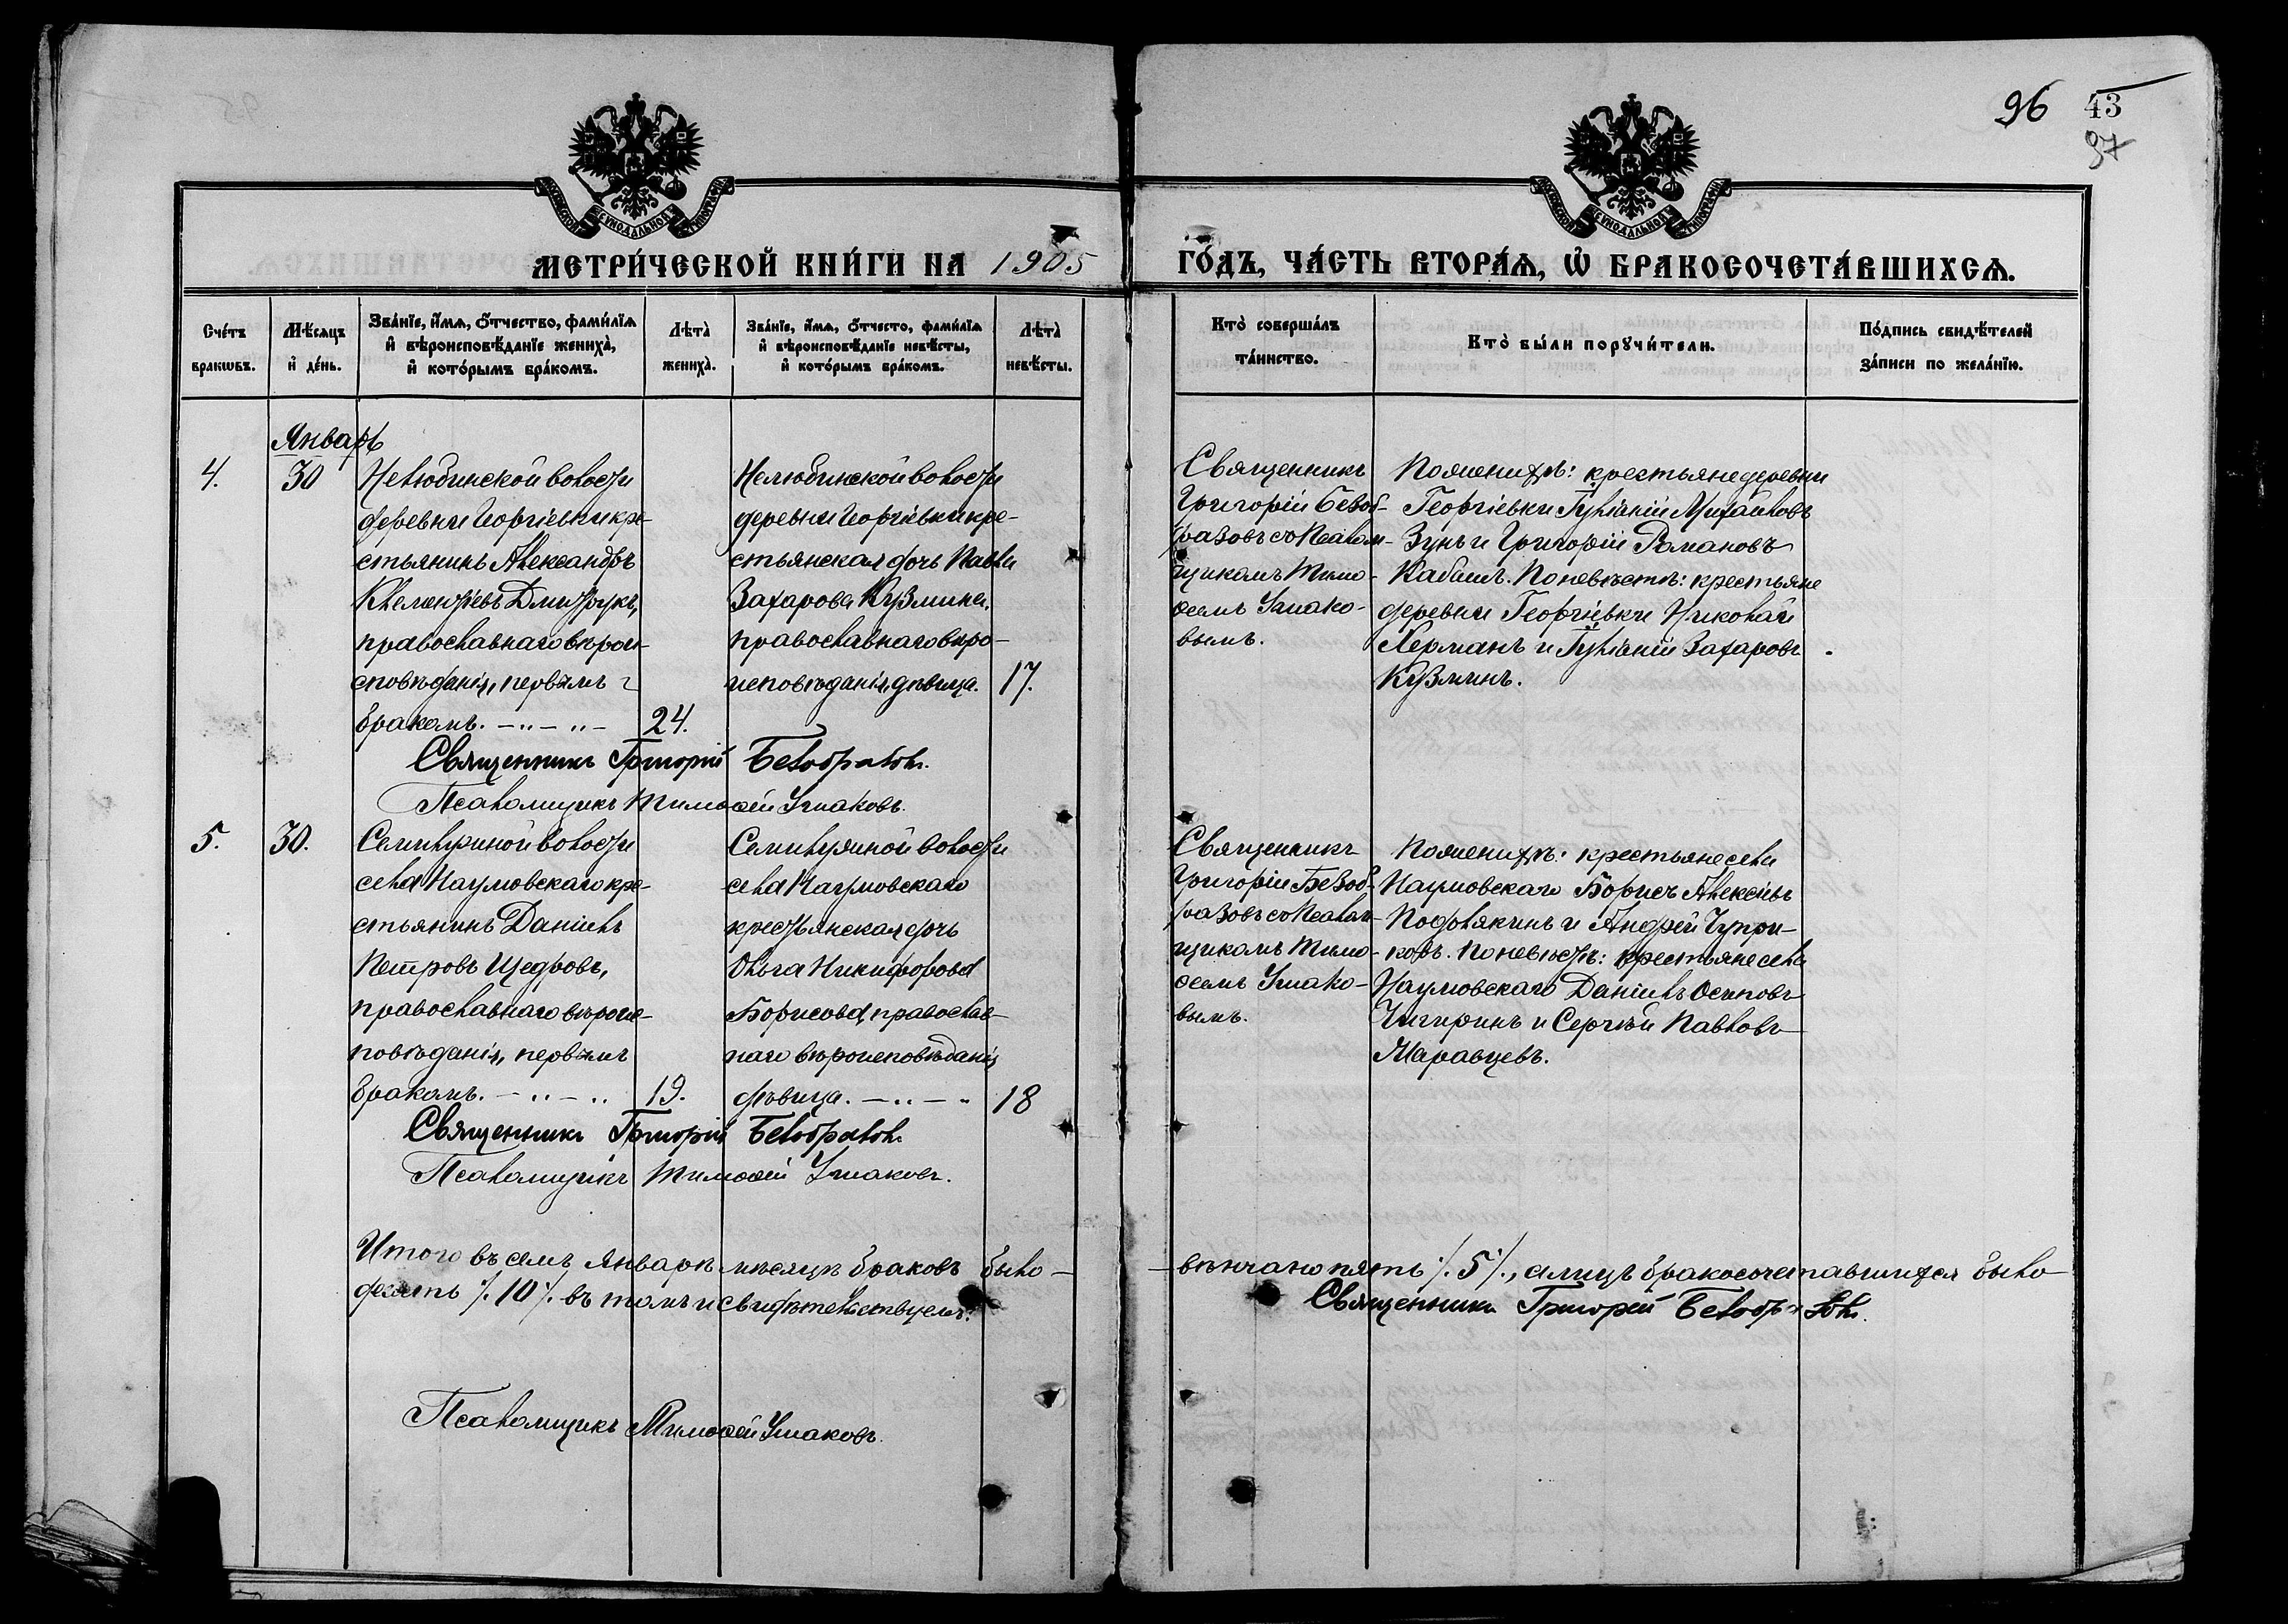 96 43
97
МОСКОВСКОЙ СУНОДАЛЬНОЙ ТИПОГРАФІИ
МОСКОВСКОЙ СУНОДАЛЬНОЙ ТИПОГРАФІИ
МЕТРИ́ЧЕСКОЙ КНИ́ГИ НА 1905
ГО́ДЪ, ЧА́СТЬ ВТОРА́Ѧ, Ѡ҆ БРАКОСОЧЕТА́ВШИХСѦ.
Сче́тъ браковъ.
Мѣ́сяцъ и҆ де́нь.
Зва́нїе, и҆́мѧ, ѻ҆́тчество, фами́лїѧ
и҆ вѣроисповѣ́данїе жениха̀,
и҆ кото́рымъ бра́комъ.
Лѣта̀ жениха̀.
Зва́нїе, и҆́мѧ, ѻ҆́тчесто, фами́лїѧ
и҆ вѣроисповѣ́данїе невѣ́сты,
и҆ кото́рымъ бра́комъ.
Лѣта̀ невѣ́сты.
Кто̀ соверша́лъ
та́инство.
Кто̀ бы́ли порꙋчи́тели.
По́дпись свидѣ́телей
за́писи по жела́нїю.
Январь
4.
30
Нелюбинской волости
деревни Георгіевки кре-
стьянинъ Александръ
Клементіевъ Дмитрукъ,
православнаго вѣрои-
сповѣданія, первымъ
бракомъ. – „ – „ –
24.
Нелюбинской волости
деревни Георгіевки кре-
стьянская дочь Павла
Захарова Кузмина,
православнаго вѣро-
исповѣданія, дѣвица.
17.
Священникъ
Григорій Безоб-
разовъ съ Псалом-
щикомъ Тимо-
ѳеемъ Ушако-
вымъ.
По женихѣ: крестьяне деревни
Георгіевки Іуліаній Михайловъ
Зунъ и Григорій Романовъ
Кабашъ. По невѣстѣ: крестьяне
деревни Георгіевки Николай
Лерманъ и Іуліаній Захаровъ
Кузминъ.
Священникъ Григорій Безобразовъ.
Псаломщикъ Тимоѳей Ушаковъ.
5.
30.
Семилужной волости
села Наумовскаго кре-
стьянинъ Даніилъ
Петровъ Щедровъ,
православнаго вѣроис-
повѣданія, первымъ
бракомъ. – „ – „
19.
Семилужной волости
села Наумовскаго
крестьянская дочь
Ольга Никифорова
Борисова, православ-
наго вѣроисповѣданія,
дѣвица. – „ – „
18
Священникъ
Григорій Безоб-
разовъ съ Псалом-
щикомъ Тимо-
ѳеемъ Ушако-
вымъ.
По женихѣ: крестьяне села
Наумовскаго Борисъ Алексѣевъ
Подолякинъ и Андрей Чупри-
ковъ. По невѣстѣ: крестьяне села
Наумовскаго Даніилъ Осиповъ
Чигиринъ и Сергѣй Павловъ
Маравцевъ.
Священникъ Григорій Безобразовъ.
Псаломщикъ Тимоѳей Ушаковъ.
Итого въ семъ январѣ мѣсяцѣ браковъ было –
– вѣнчано пять /.5/., а лицъ бракосочетавшихся было
десять /.10/. въ томъ и свидѣтельствуемъ:
Священникъ Григорій Безобразовъ.
Псаломщикъ Тимоѳей Ушаковъ.